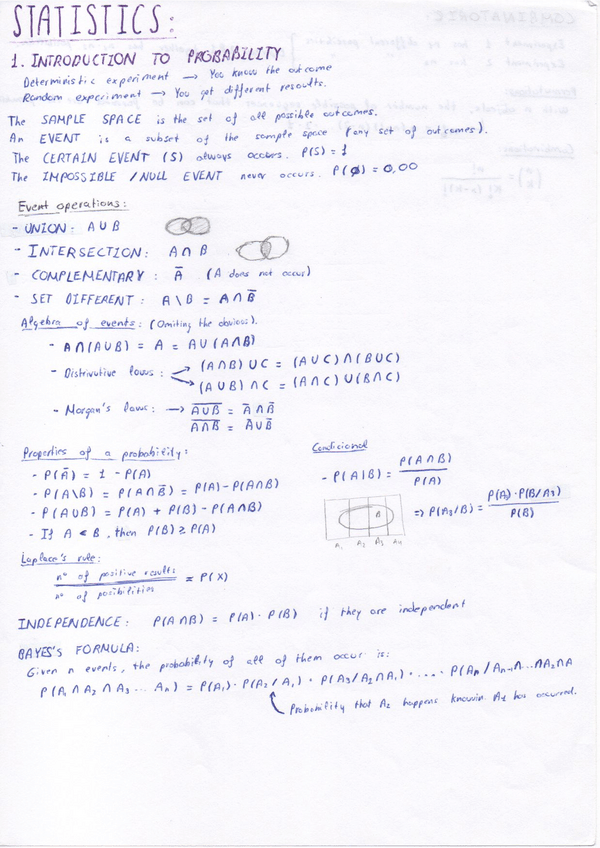 STATISTICS:
1. INTRODUCTION TO PROBABILITY
Deterministic experiment → You know the outcome
Random experiment → You get different resoults.
The SAMPLE SPACE is the set of all possible outcomes.
An EVENT is a subset of the sample space (any set of outcomes).
The CERTAIN EVENT (S) always occurs. P(S) = 1
The IMPOSSIBLE / NULL EVENT never occurs. P(∅) = 0,00
Event operations:
- UNION: A ∪ B
- INTERSECTION: A ∩ B
- COMPLEMENTARY: A̅ (A does not occur)
- SET DIFFERENT: A \ B = A ∩ B̅
Algebra of events: (Omiting the obvious).
- A ∩ (A ∪ B) = A = A ∪ (A ∩ B)
- Distrivutive laws: (A ∩ B) ∪ C = (A ∪ C) ∩ (B ∪ C)
(A ∪ B) ∩ C = (A ∩ C) ∪ (B ∩ C)
- Morgan's laws: → A̅∪̅B̅ = A̅ ∩ B̅
A̅∩̅B̅ = A̅ ∪ B̅
Properties of a probability:
- P(A̅) = 1 - P(A)
- P(A\B) = P(A ∩ B̅) = P(A) - P(A ∩ B)
- P(A ∪ B) = P(A) + P(B) - P(A ∩ B)
- If A < B, then P(B) ≥ P(A)
Condicional
- P(A|B) = P(A ∩ B) / P(A)
B
A₁ A₂ A₃ A₄
⇒ P(A₃/B) = P(A) · P(B/A₃) / P(B)
Laplace's rule:
nº of positive results / nº of posibilities = P(X)
INDEPENDENCE: P(A ∩ B) = P(A) · P(B) if they are independent
BAYES'S FORMULA:
Given n events, the probability of all of them occur is:
P(A₁ ∩ A₂ ∩ A₃ ... Aₙ) = P(A₁) · P(A₂/A₁) · P(A₃/A₂∩A₁) · .... · P(Aₙ/Aₙ₋₁∩...∩A₂∩A
Probability that A₂ happens knowin A₁ has occurred.